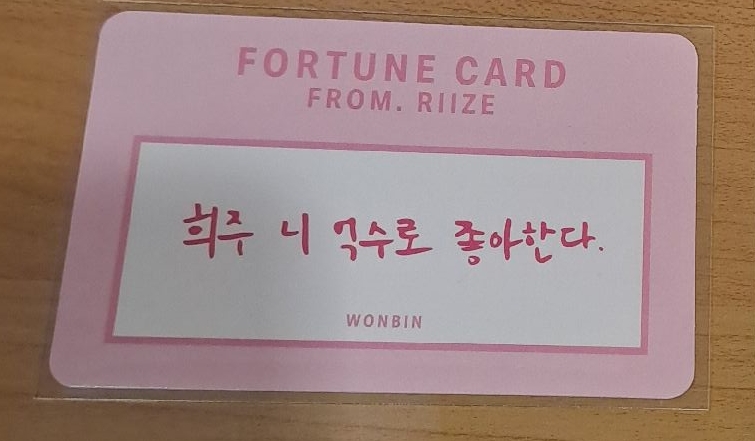 FORTUNE CARD
FROM. RIIZE
희주 니 억수로 좋아한다.
WONBIN